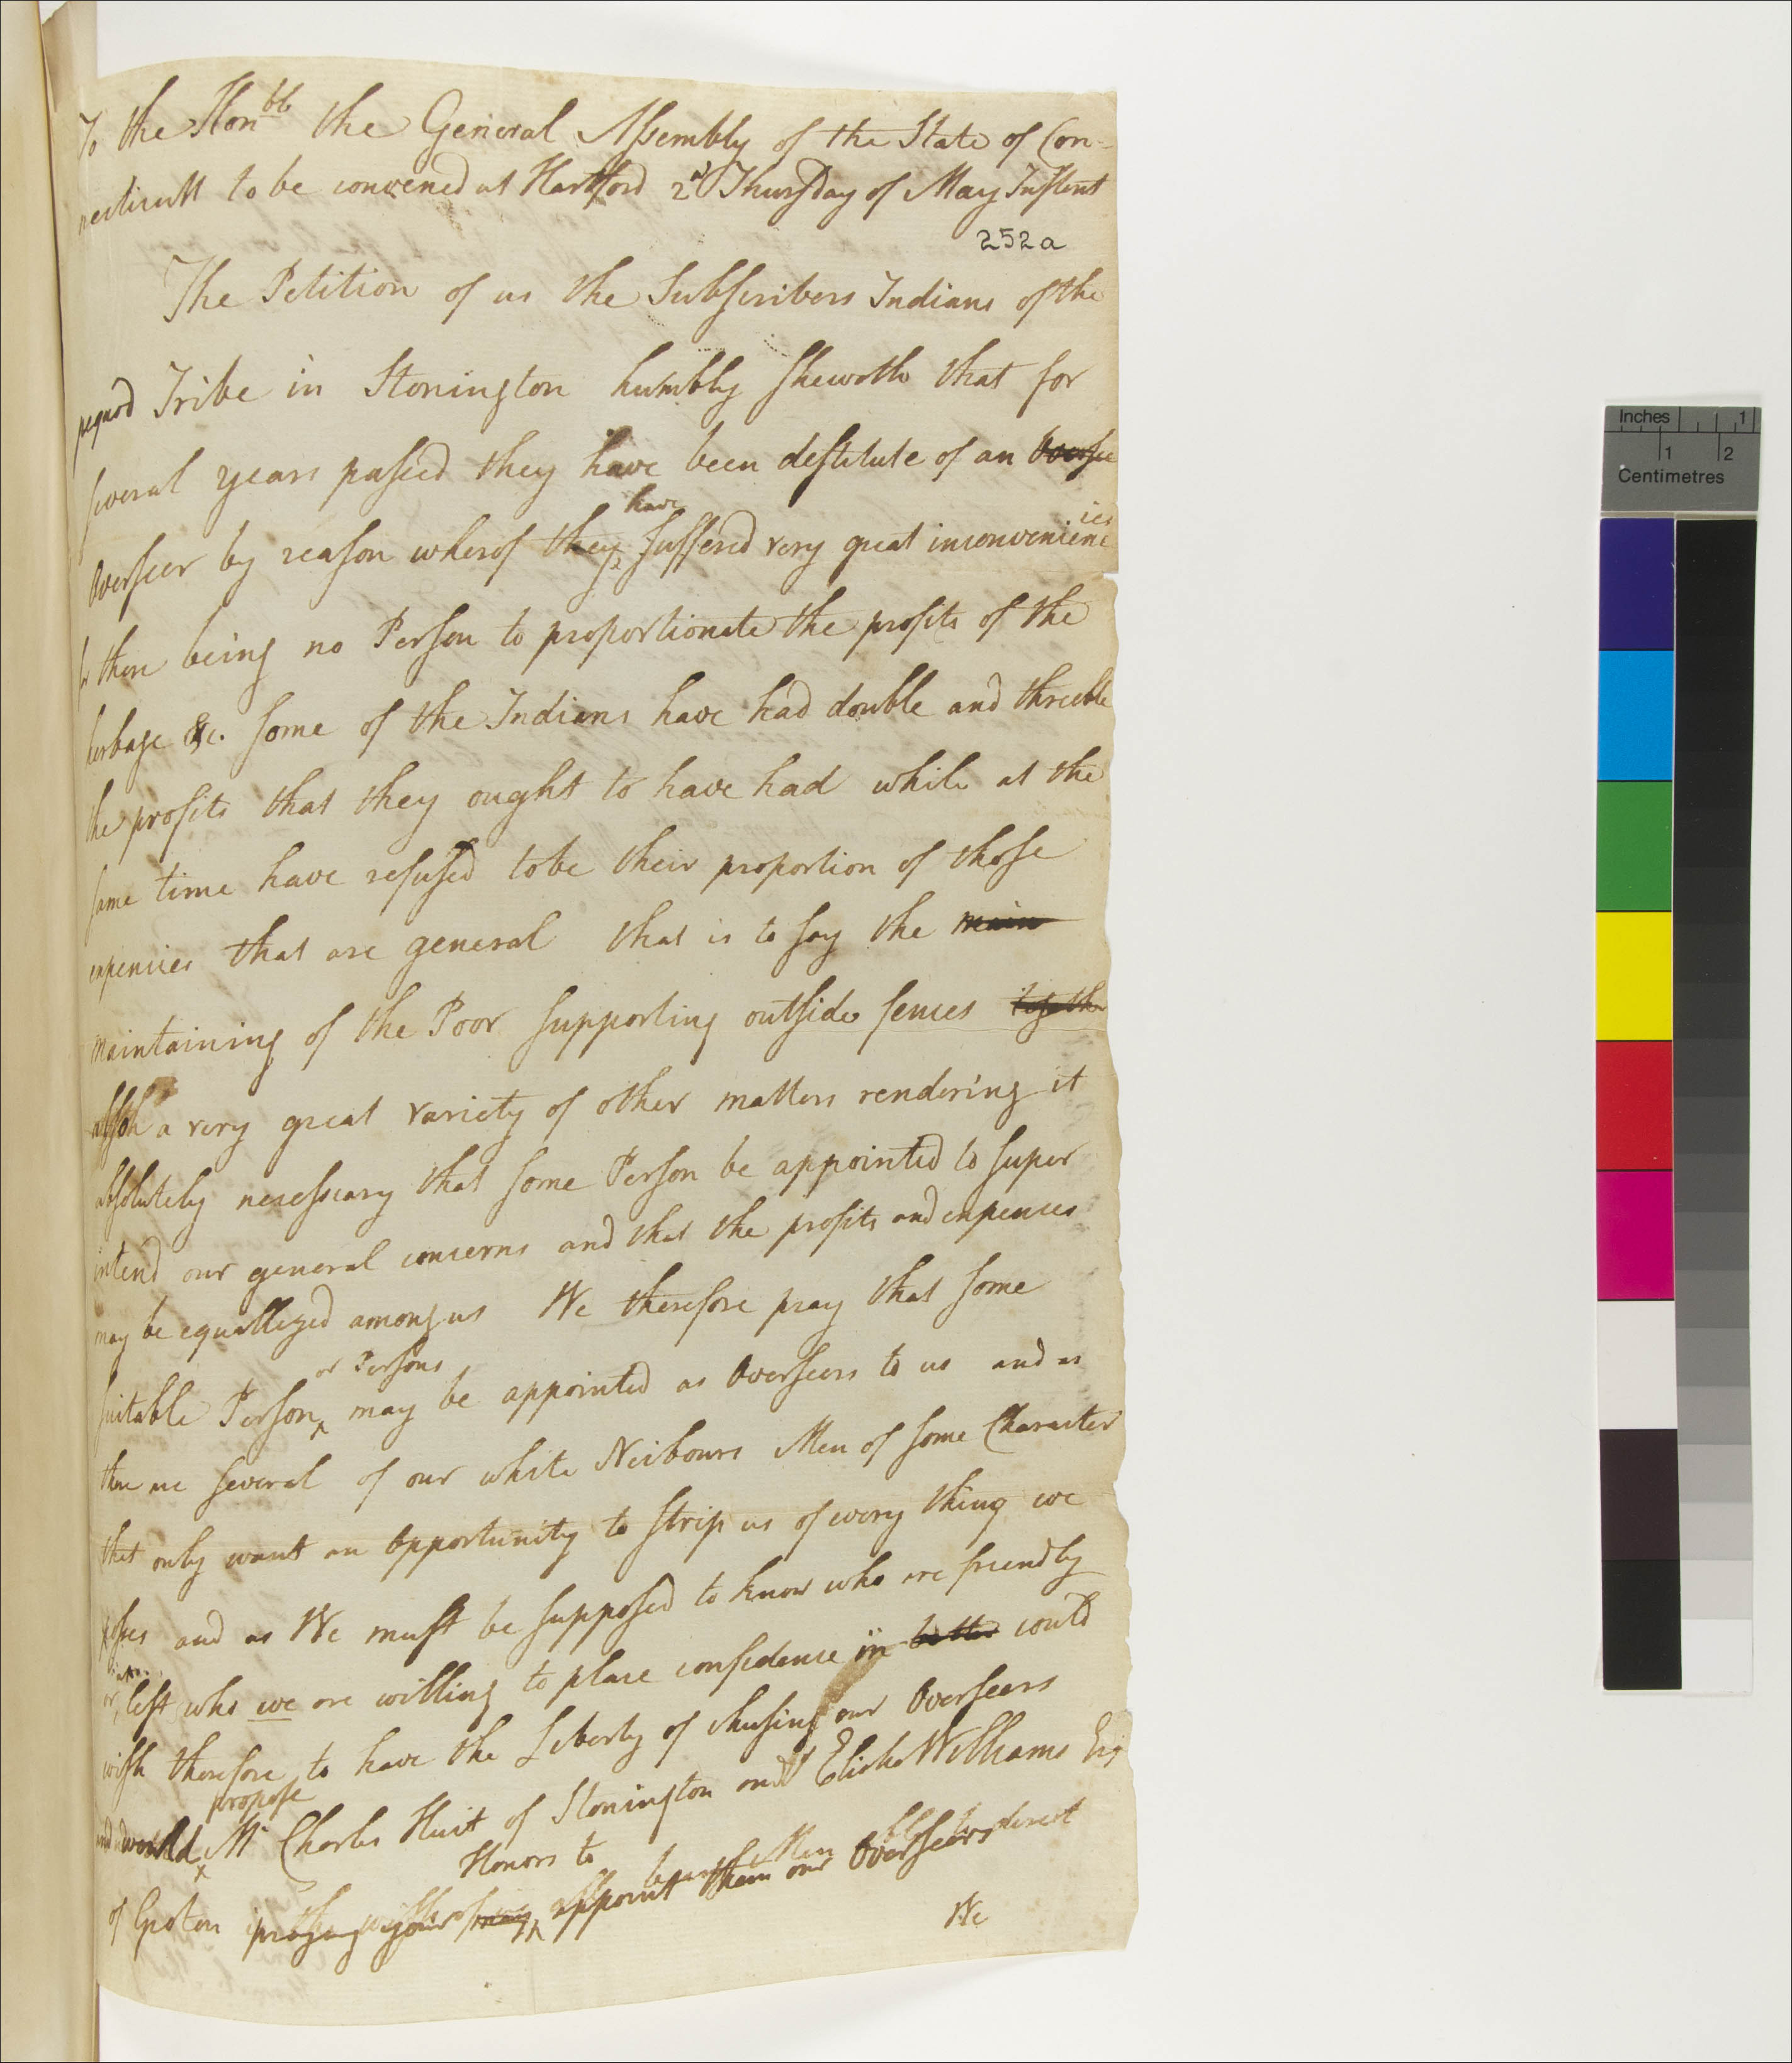 To the Honble the General Assembly of the State of Con-
necticutt to be convened at Hartford 2d Thursday of May Instent
252a
The Petition of us the Subscribers Indians of the
pequod Tribe in Stonington humbly sheweth that for
several years passed they have been destitute of an Oversee
Overseer by reason wherof they have suffered very great inconveniencies
for there being no Person to proportionate the profits of the
herbage &c. some of the Indians have had double and threeble
the profits that they ought to have had while at the
same time have refused to be their proportion of those
expencies that are general that is to say the main
maintaining of the Poor supporting outside fences together
a very great variety of other matters rendering it
absolutely necessary that some Person be appointed to super
intend our general concerns and that the profits and expences
may be equallized among us We therefore pray that some
suitable Person or Persons may be appointed as Overseers to us and as
there are several of our white Neibours Men of some Character
that only want an Opportunity to strip us of every thing we
posses and as We must be supposed to know who are friendly
or at lest who we are willing to place confidence in better could
wish therefore to have the Liberty of chusing our Overseers
and would propose Mr Charles Huit of Stonington and Elisha Williams Esq
of Groton praying your Honors to appoint them our Overseers
We
Inches 1
1 2
Centimetres